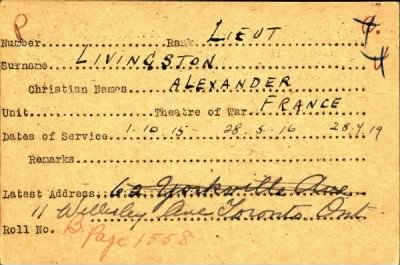 P
Number Rank LIEUT
Surname LIVINGSTON
Christian Names ALEXANDER
Unit Theatre of War FRANCE
Dates of Service 1-10-15 28-5-16 28.4.19
Remarks
Latest Address 62 Yorkville Ave
11 Wellesley Ave Toronto Ont
Roll No. B. Page 1558